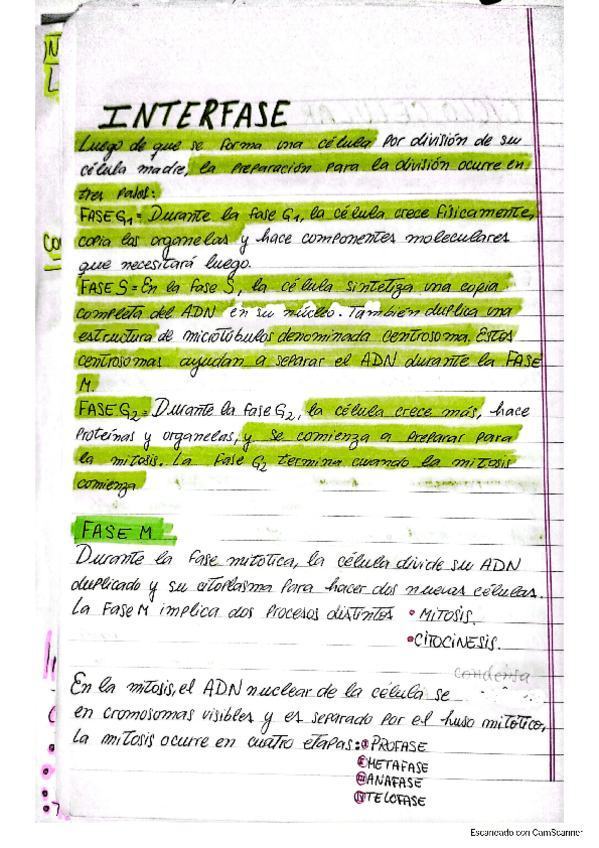 INTERFASE
Luego de que se forma una célula por división de su
célula madre, la preparación para la división ocurre en
tres pasos:
FASE G1= Durante la fase G1, la célula crece físicamente,
copia las organelas y hace componentes moleculares
que necesitará luego.
FASE S= En la fase S, la célula sintetiza una copia
completa del ADN en su núcleo. También duplica una
estructura de microtúbulos denominada centrosoma. Estos
centrosomas ayudan a separar el ADN durante la FASE
M.
FASE G2= Durante la fase G2, la célula crece más, hace
proteínas y organelas, y se comienza a preparar para
la mitosis. La fase G2 termina cuando la mitosis
comienza.
FASE M
Durante la fase mitótica, la célula divide su ADN
duplicado y su citoplasma para hacer dos nuevas células.
La Fase M implica dos procesos distintos • MITOSIS.
•CITOCINESIS.
condensa
En la mitosis, el ADN nuclear de la célula se
en cromosomas visibles y es separado por el huso mitótico,
la mitosis ocurre en cuatro etapas: PROFASE
METAFASE
ANAFASE
TELOFASE
Escaneado con CamScanner